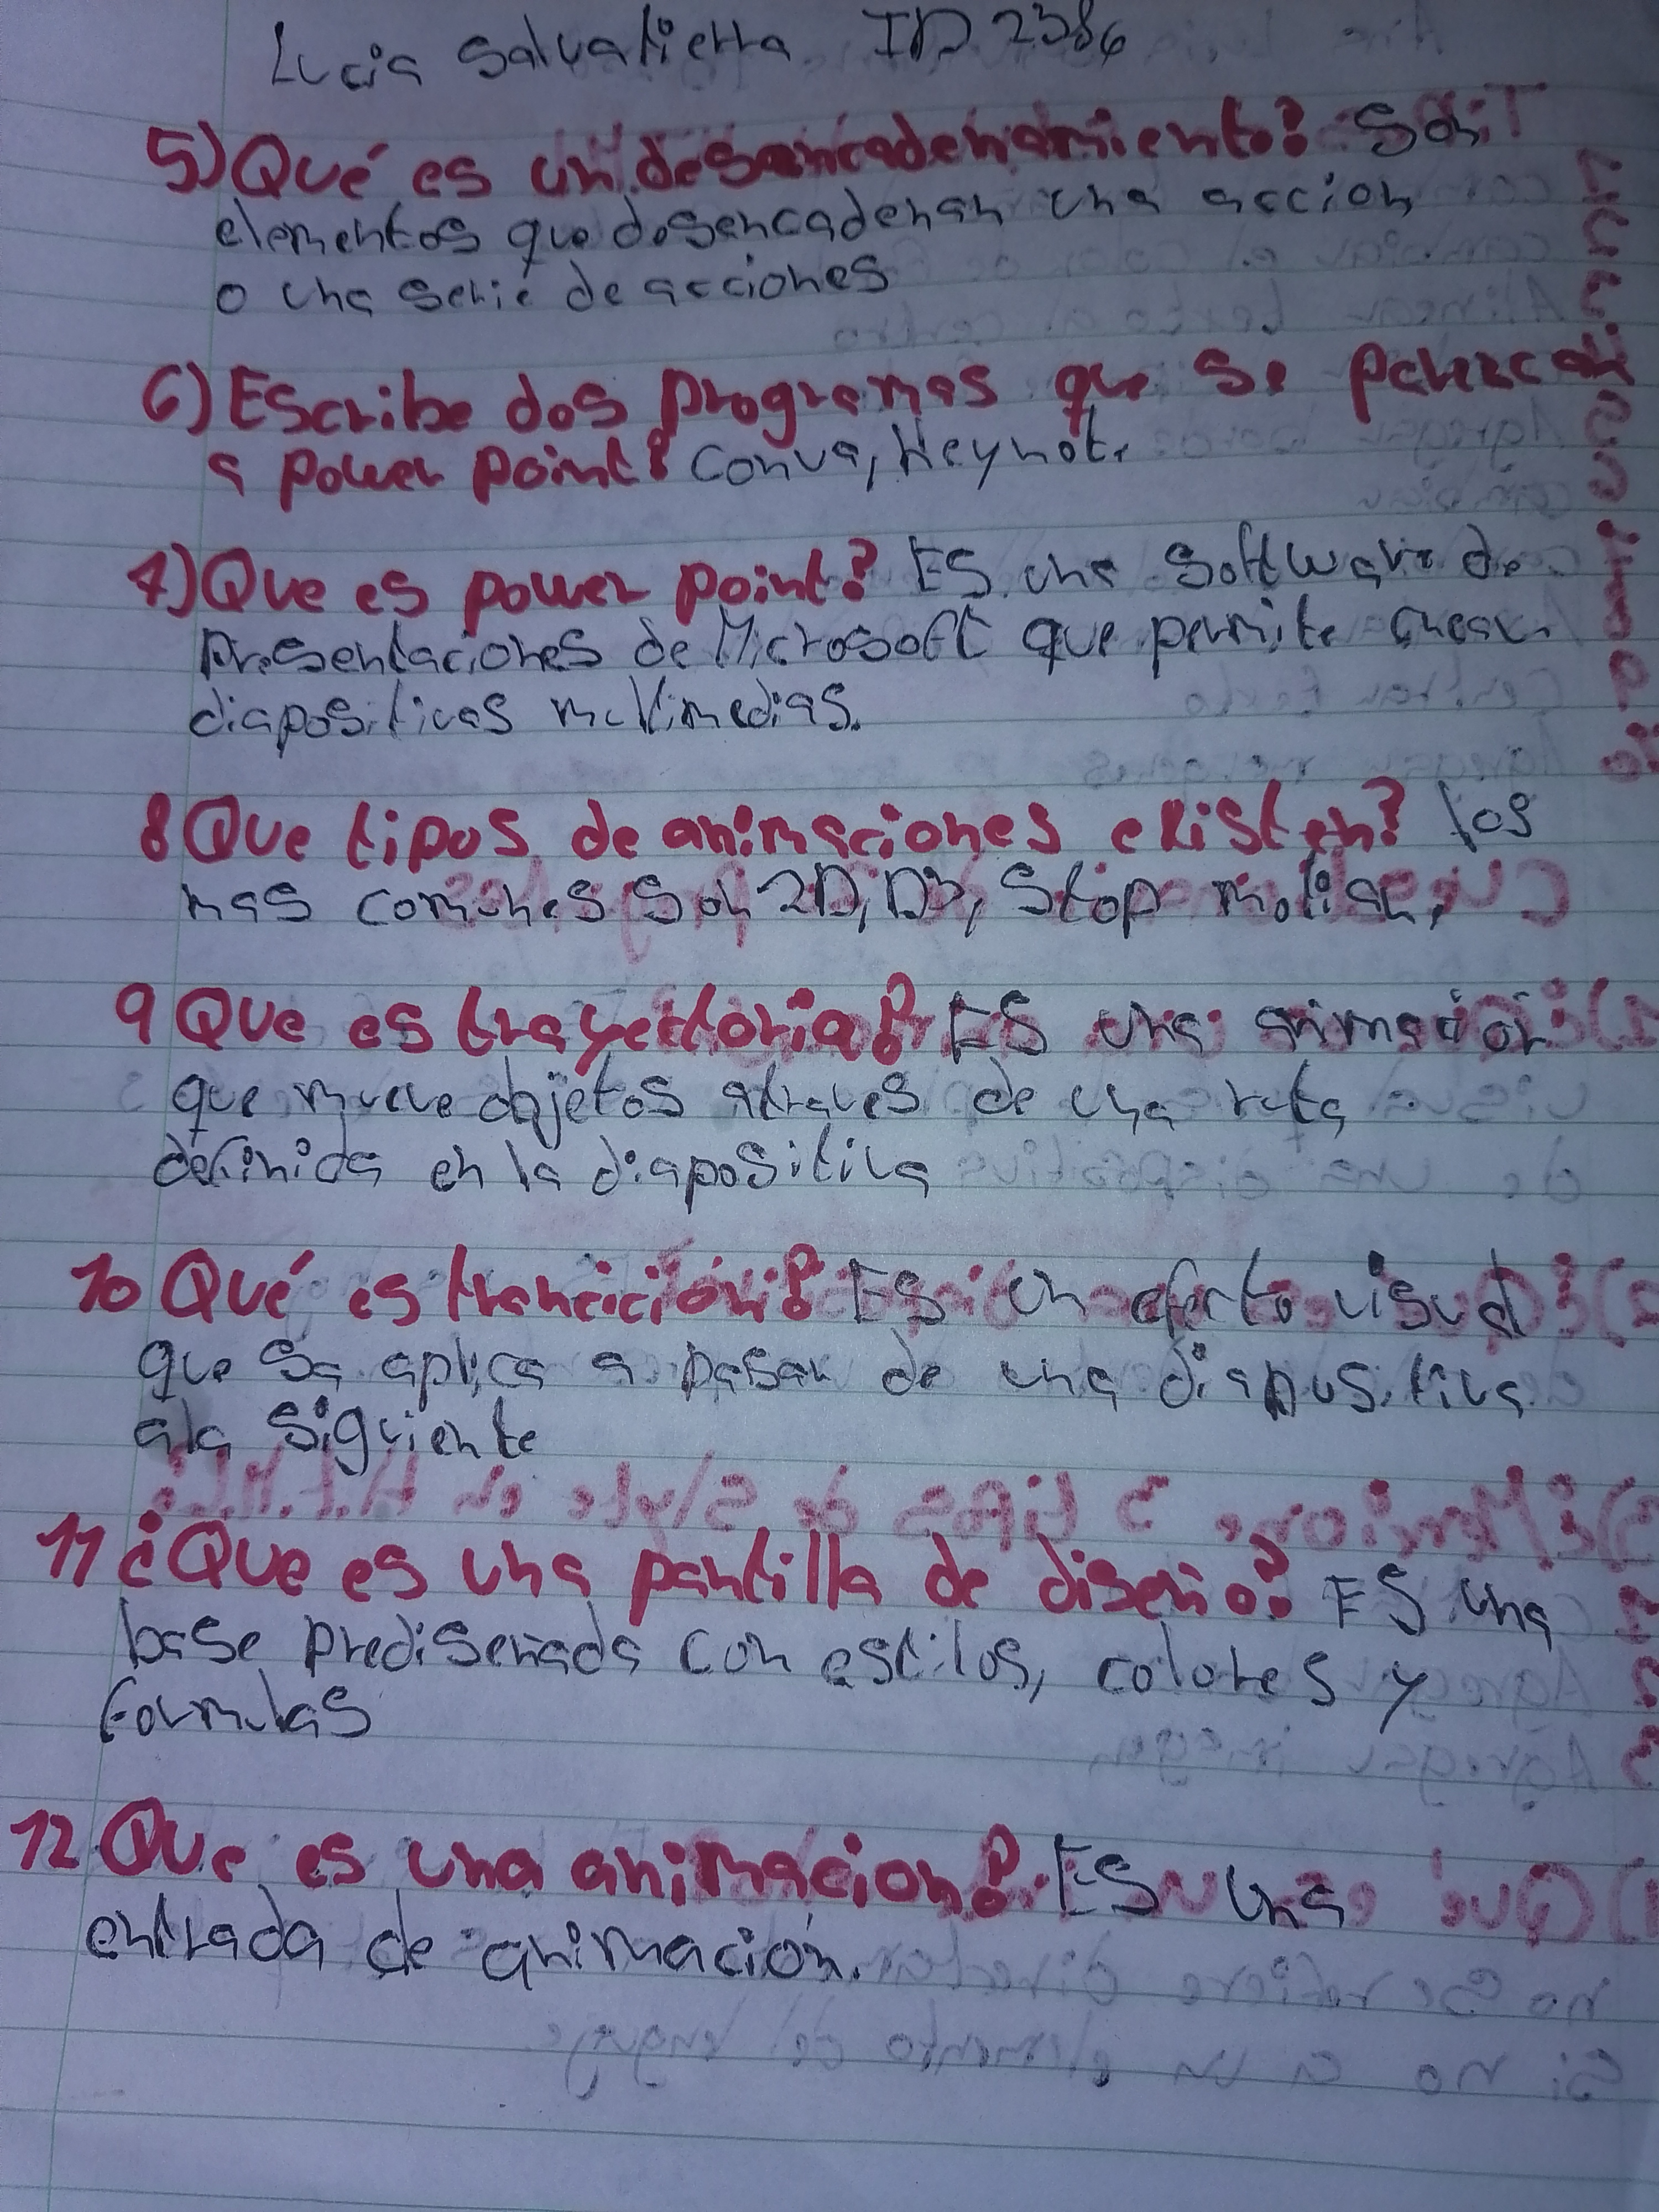 Lucia Salvatierra ID 2386
5) Qué es un desencadenamiento? Son
elementos que desencadenan una accion
o una serie de acciones
6) Escribe dos programas que se parezcan
a power point? Conva, Keynote
7) Que es power point? ES una Software de
presentaciones de Microsoft que permite crear
diapositivas multimedias.
8 Que tipos de animaciones existen? los
mas comunes Son 2D, D3, Stop motion,
9 Que es trayectoria? ES una animación
que mueve objetos atraves de una ruta
definida en la diapositiva
10 Qué es trancición? ES un efecto visual
que Sa aplica a pasar de una diapositiva
ala Siguiente
11 ¿Que es una pantilla de diseño? ES una
base prediseñada con estilos, colores y
formulas
12 Que es una animacion? ES una
entrada de animación.